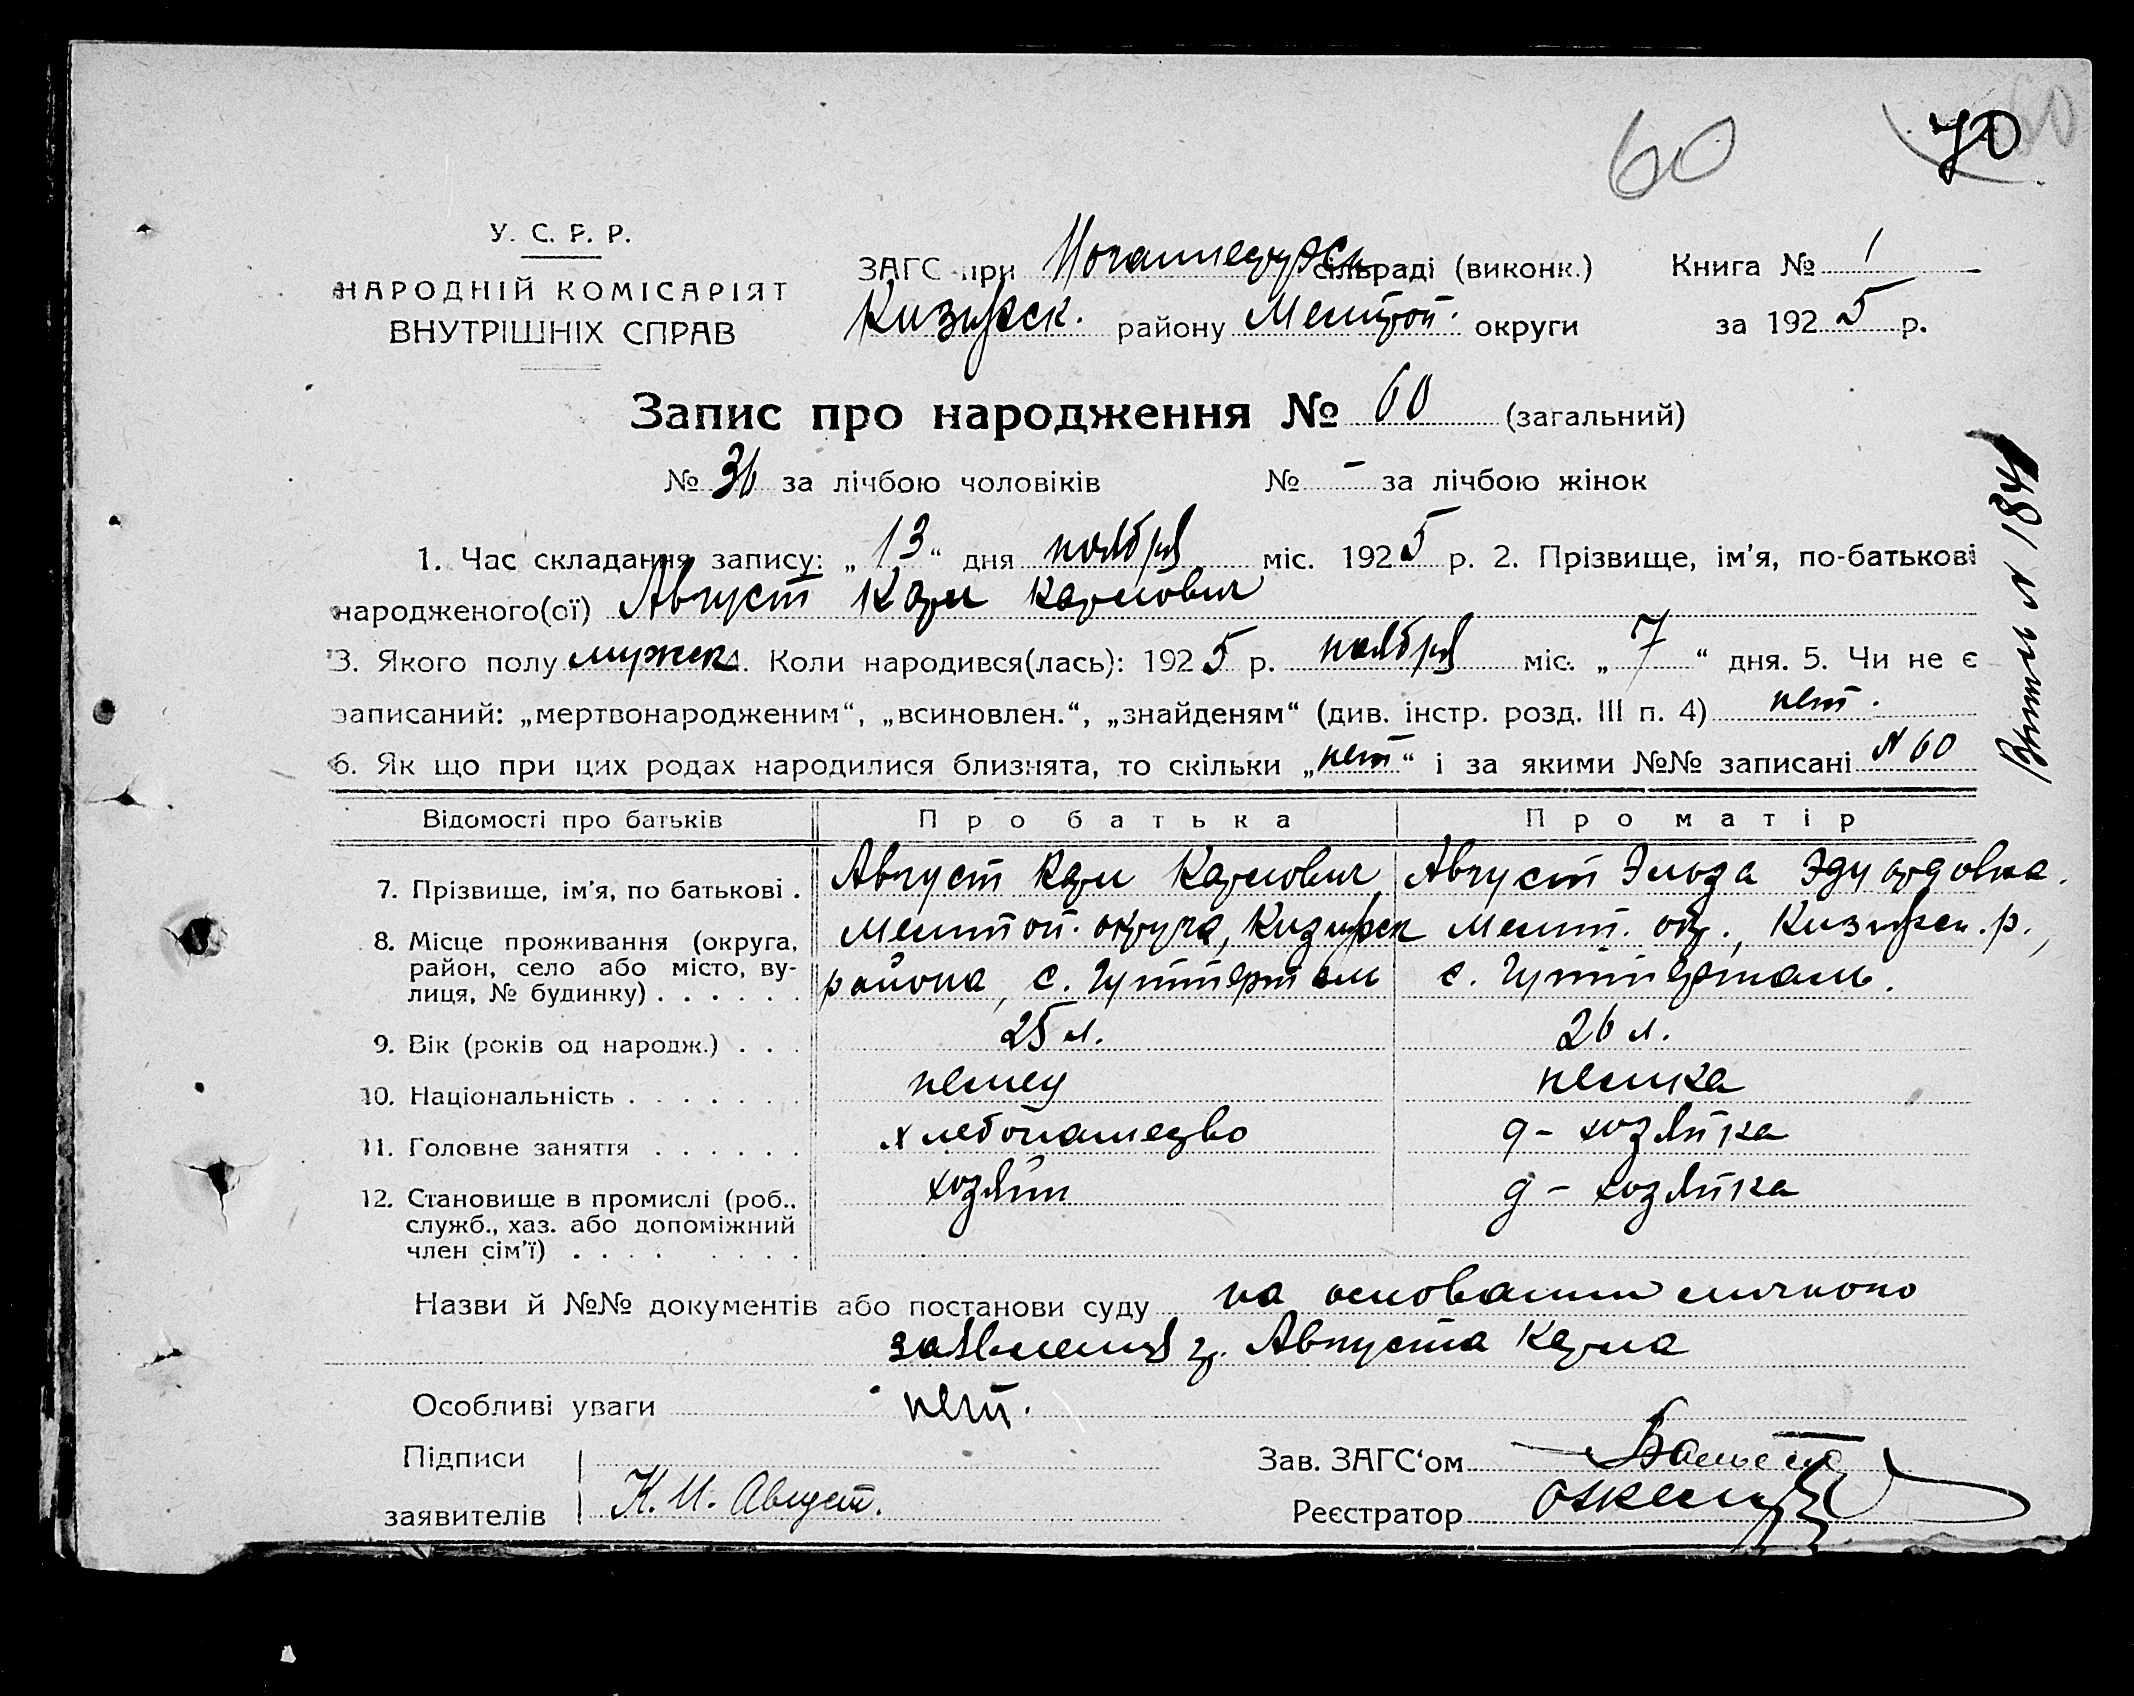 60
70
У. С. Р. Р.
НАРОДНІЙ КОМІСАРІЯТ
ВНУТРІШНІХ СПРАВ
ЗАГС при сільраді (виконк.) Книга № 1
району Мелитоп. округи за 1925 р.
Запис про народження № 60 (загальний)
№ 36 за лічбою чоловіків № – за лічбою жінок
1. Час складання запису: „13“ дня ноября міс. 1925 р. 2. Прізвище, ім'я, по-батькові
народженого(ої) Август Карл Карлович
3. Якого полу мужск 4. Коли народився(лась): 1925 р. ноября міс. „7“ дня. 5. Чи не є
записаний: „мертвонародженим“, „всиновлен.“, „знайденям“ (див. інстр. розд. III п. 4) нет.
6. Як що при цих родах народилися близнята, то скільки „нет“ і за якими №№ записані N 60
Відомості про батьків Про батька Про матір
7. Прізвище, ім'я, по батькові . Август Карл Карлович Август Эльза Эдуардовна.
8. Місце проживання (округа, район, село або місто, вулиця, № будинку) . . . . . . Мелитоп. округа, района, с. Гуттерталь Мелит. окр., р., с. Гуттерталь.
9. Вік (років од народж.) . . . 25 л. 26 л.
10. Національність . . . . . . . немец немка
11. Головне заняття . . . . . . хлебопашество д-хозяйка
12. Становище в промислі (роб., служб., хаз. або допоміжний член сім'ї) . . . . . . . . хозяин д-хозяйка
Назви й №№ документів або постанови суду на основании личного
заявления гр. Августа Карла
Особливі уваги нет.
Підписи
заявителів К. И. Август.
Зав. ЗАГС'ом
Реєстратор